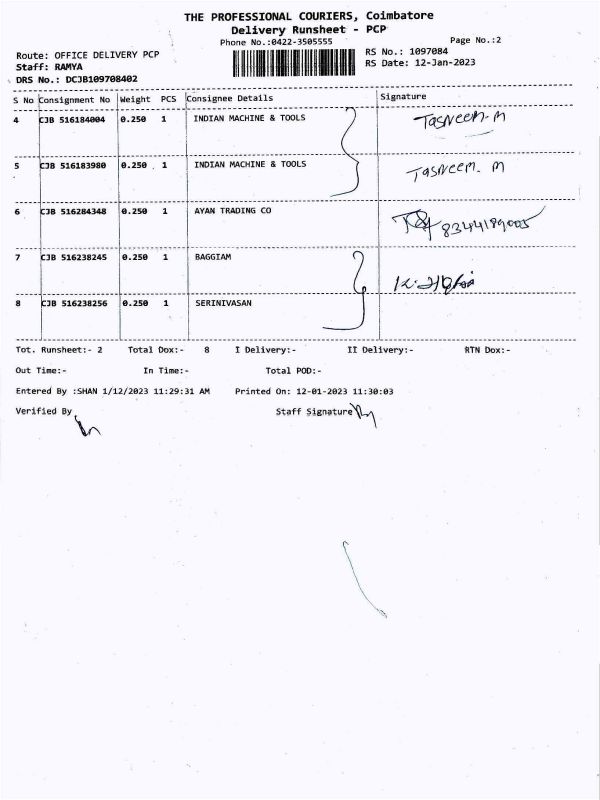 THE PROFESSIONAL COURIERS, Coimbatore
Delivery Runsheet - PCP
Phone No.:0422-3505555
Page No.:2
Route: OFFICE DELIVERY PCP
RS No.: 1097084
Staff: RAMYA
RS Date: 12-Jan-2023
DRS No.: DCJB109708402
S No Consignment No Weight PCS Consignee Details Signature
4 CJB 516184004 0.250 1 INDIAN MACHINE & TOOLS Tasneem. M
5 CJB 516183980 0.250 1 INDIAN MACHINE & TOOLS Tasneem. M
6 CJB 516284348 0.250 1 AYAN TRADING CO 8344189005
7 CJB 516238245 0.250 1 BAGGIAM
8 CJB 516238256 0.250 1 SERINIVASAN
Tot. Runsheet:- 2 Total Dox:- 8 I Delivery:- II Delivery:- RTN Dox:-
Out Time:- In Time:- Total POD:-
Entered By :SHAN 1/12/2023 11:29:31 AM Printed On: 12-01-2023 11:30:03
Verified By Staff Signature